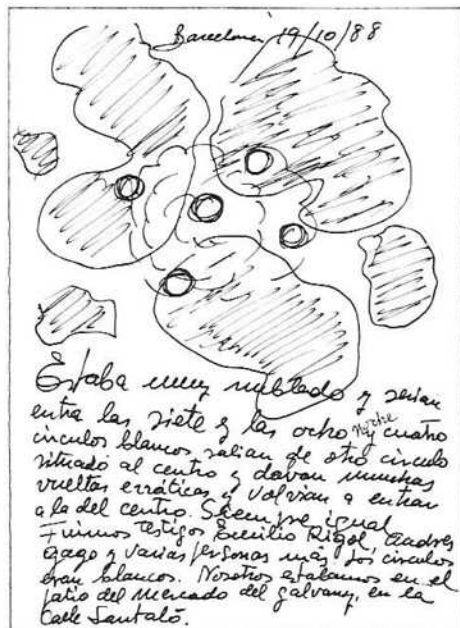 Barcelona 19/10/88
Estaba muy nublado y serian
entra las siete y las ocho noche y cuatro
circulos blancos salian de otro circulo
situado al centro y davan muchas
vueltas erráticas y volvian a entrar
a la del centro. Siempre igual
Fuimos testigos Emilio Rigol, Andres
Gago y varias personas más. Los circulos
eran blancos. Nosotros estabamos en el
patio del mercado del galvany, en la
Calle Santaló.